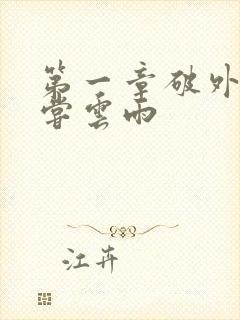 第一章破外
尝云雨
江卉